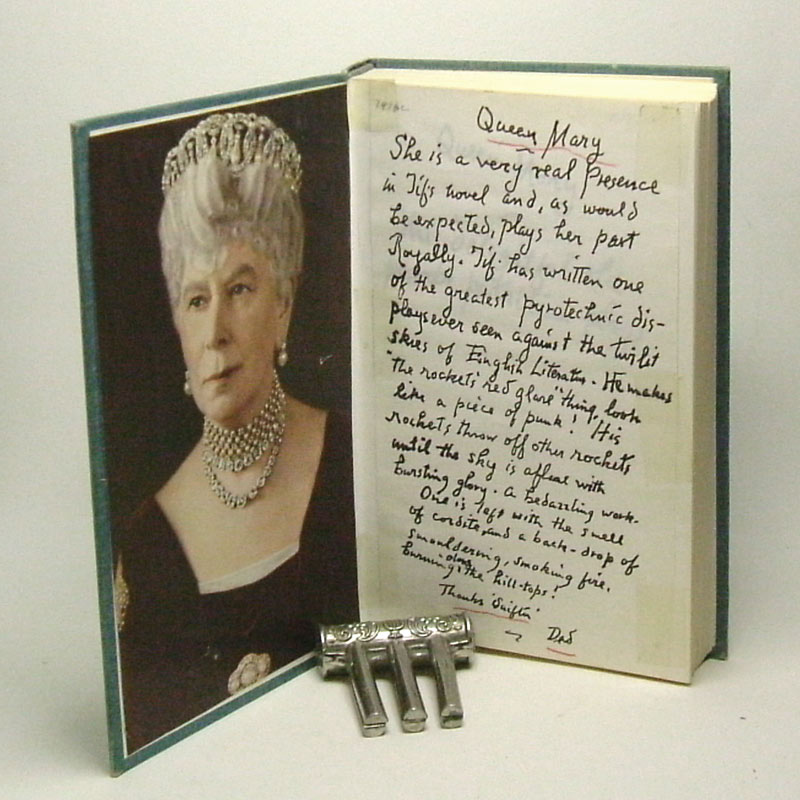 Queen Mary
She is a very real Presence
in Tif's novel and, as would
be expected, plays her part
Royally. Tif has written one
of the greatest pyrotechnic dis-
plays ever seen against the twilit
skies of English Literatu. He makes
"the rockets' red glare" thing, look
like a piece of punk! His
rockets throw off other rockets
until the sky is afleae with
bursting glory. A bedazzling work.
One is left with the smell
of cordite, and a back-drop of
smouldering, smoking fire,
burning along the hill-tops!
Thanks 'Swifty'
Dad